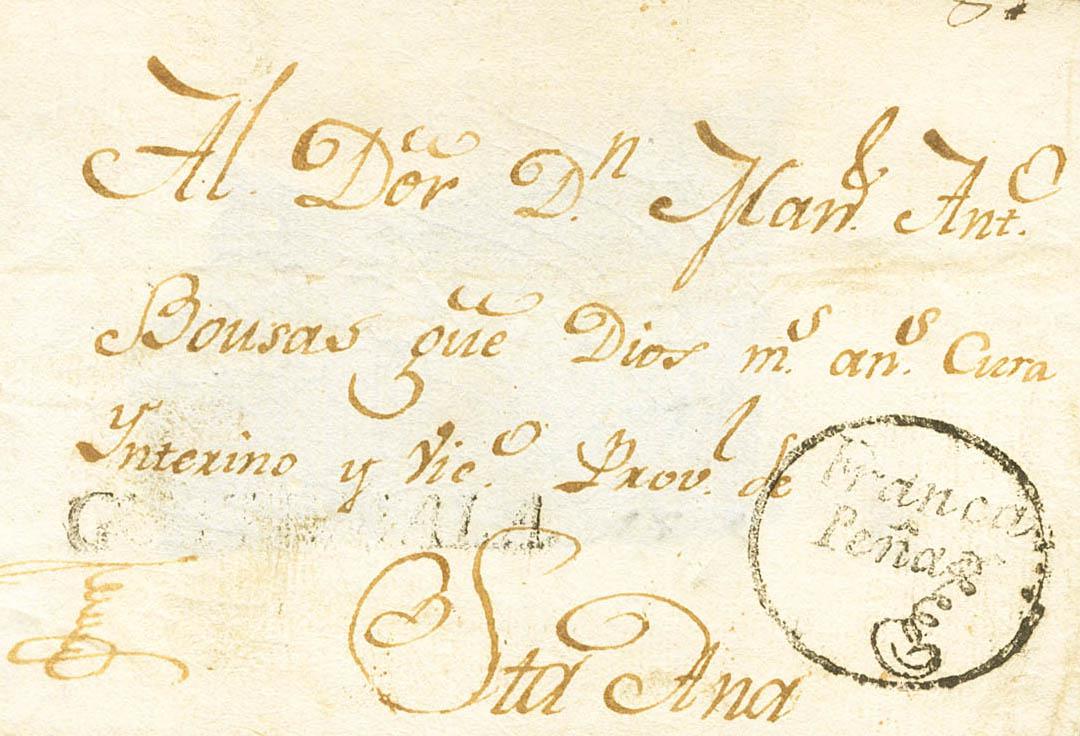 Al Dor Dn Manl. Anto.
Bousas que Dios ms. ans. Cura
Ynterino y Vico. Provl. de
Sta Ana
Franca
Peña